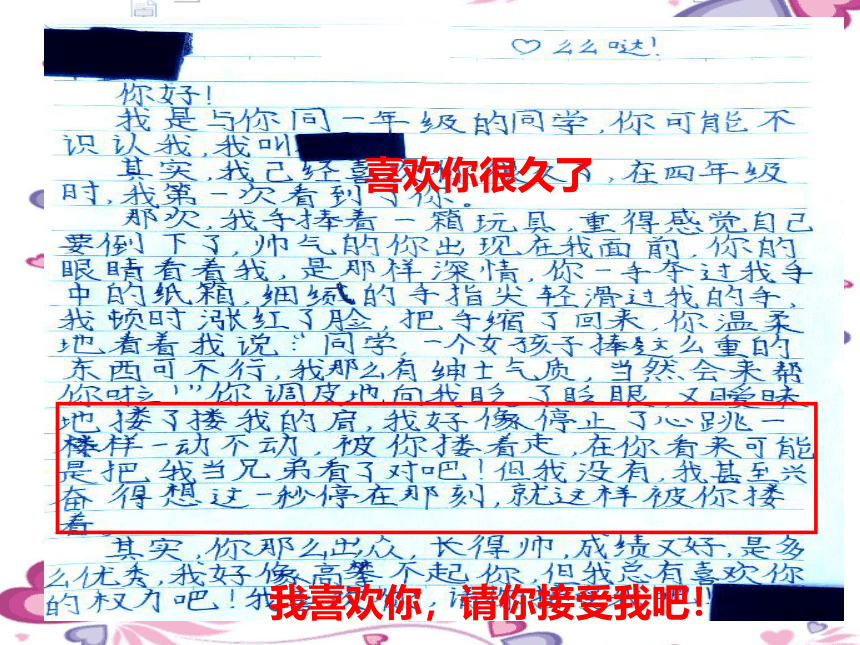 ♡么么哒!
你好!
我是与你同一年级的同学,你可能不
识认我,我叫
其实,我己经喜欢你很久了,在四年级
时,我第一次看到了你。
那次,我手捧着一箱玩具,重得感觉自己
要倒下了,帅气的你出现在我面前,你的
眼睛看着我,是那样深情,你一手夺过我手
中的纸箱,细的手指尖轻滑过我的手,
我顿时涨红了脸,把手缩了回来,你温柔
地看着我说:"同学,一个女孩子捧这么重的
东西可不行,我那么有绅士气质,当然会来帮
你啦!"你调皮地向我眨了眨眼,又暧昧
地搂了搂我的肩,我好像停止了心跳一
样一动不动,被你搂着走,在你看来可能
是把我当兄弟看了对吧!但我没有,我甚至兴
奋得想这一秒停在那刻,就这样被你搂
着
其实,你那么出众,长得帅,成绩又好,是多
么优秀,我好像高攀不起你,但我总有喜欢你
的权力吧!我喜欢你，请你接受我吧！